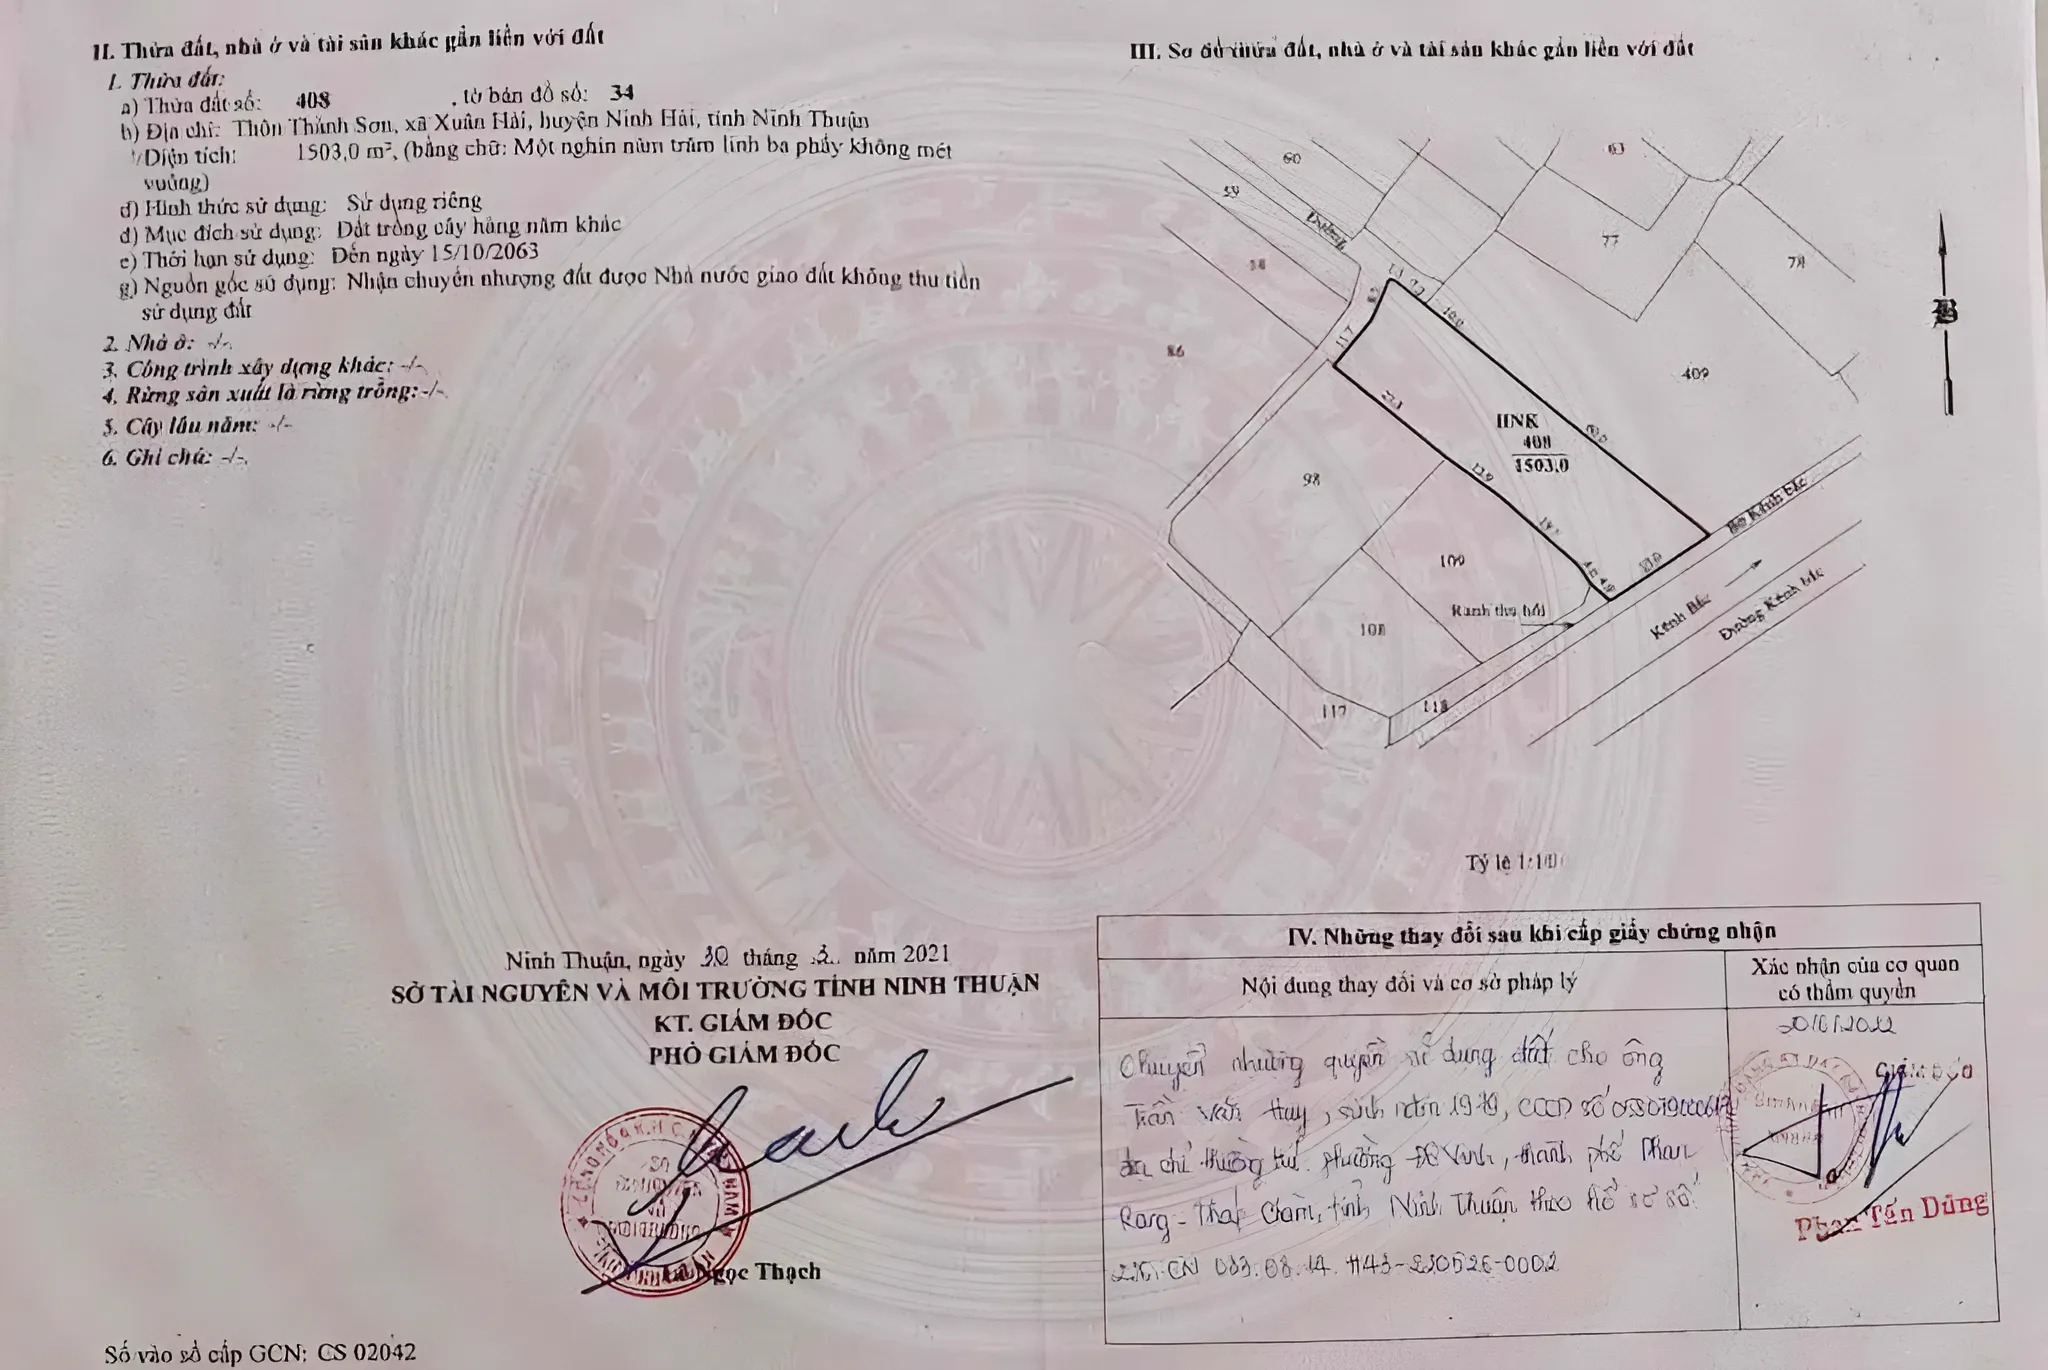 II. Thửa đất, nhà ở và tài sản khác gắn liền với đất
1. Thửa đất:
a) Thửa đất số: 408 , tờ bản đồ số: 34
b) Địa chỉ: Thôn Thành Sơn, xã Xuân Hải, huyện Ninh Hải, tỉnh Ninh Thuận
Diện tích: 1503,0 m², (bằng chữ: Một nghìn năm trăm linh ba phẩy không mét
vuông)
d) Hình thức sử dụng: Sử dụng riêng
đ) Mục đích sử dụng: Đất trồng cây hàng năm khác
e) Thời hạn sử dụng: Đến ngày 15/10/2063
g) Nguồn gốc sử dụng: Nhận chuyển nhượng đất được Nhà nước giao đất không thu tiền
sử dụng đất
2. Nhà ở: -/-
3. Công trình xây dựng khác: -/-
4. Rừng sản xuất là rừng trồng: -/-
5. Cây lâu năm: -/-
6. Ghi chú: -/-
Ninh Thuận, ngày 30 tháng năm 2021
SỞ TÀI NGUYÊN VÀ MÔI TRƯỜNG TỈNH NINH THUẬN
KT. GIÁM ĐỐC
PHÓ GIÁM ĐỐC
Ngọc Thạch
Số vào sổ cấp GCN: CS 02042
III. Sơ đồ thửa đất, nhà ở và tài sản khác gắn liền với đất
60
63
59
Đường
77
78
58
86
409
HNK
408
1503,0
98
109
108
Ranh thu hồi
Bờ Kênh Bắc
Kênh Bắc
Đường Kênh bắc
117
118
Tỷ lệ
IV. Những thay đổi sau khi cấp giấy chứng nhận
Nội dung thay đổi và cơ sở pháp lý
Xác nhận của cơ quan
có thẩm quyền
Chuyển nhượng quyền sử dụng đất cho ông
Trần Văn Huy, sinh năm 1979, CCCD số
địa chỉ thường trú: phường Đô Vinh, thành phố Phan
Rang - Tháp Chàm, tỉnh Ninh Thuận theo hồ sơ số
GIÁM ĐỐC
Phan Tấn Dũng